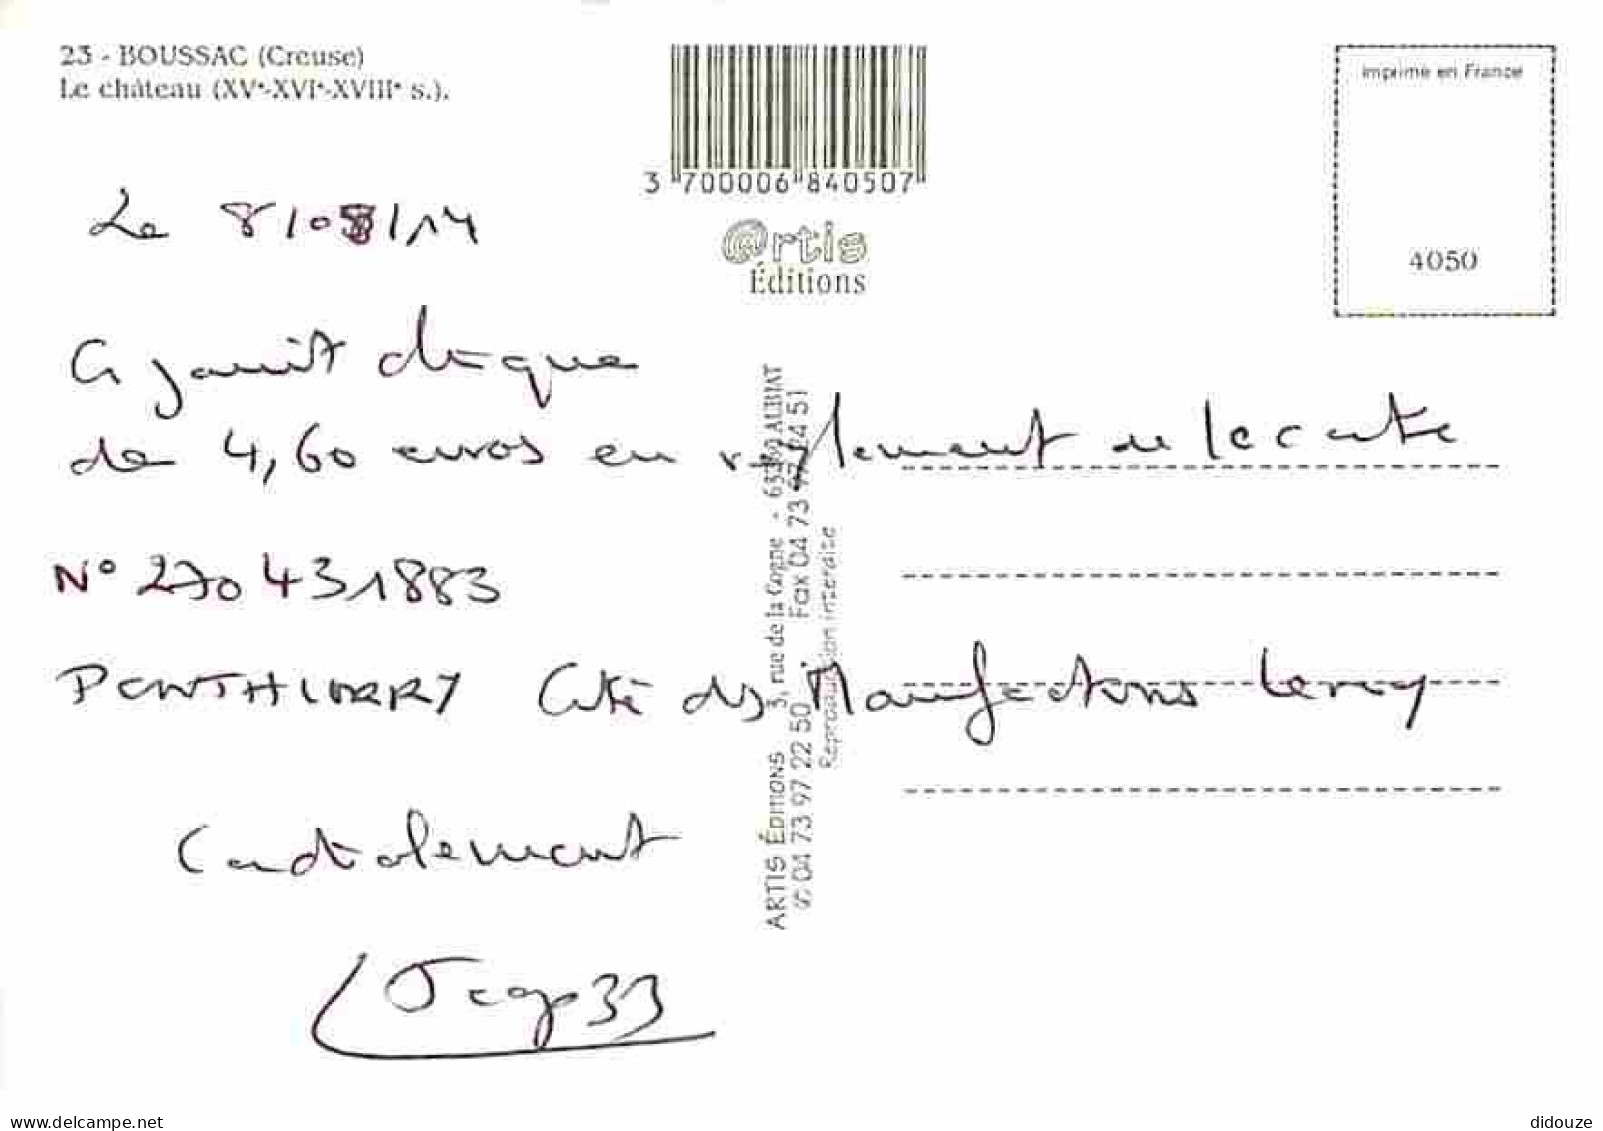 23 - BOUSSAC (Creuse)
Le château (XVe-XVIe-XVIIIe s.).
3 700006 840507
@rtis
Éditions
Imprimé en France
4050
Le 8/08/14
Ci joint chèque
de 4,60 euros en règlement de la carte
N° 270431883
PONTHIERRY Cité des Manufactures Leroy
Cordialement
ARTIS ÉDITIONS 3, rue de la Cogne - AUBIAT
04 73 97 22 50 Fax 04 73 97 24 51
Reproduction interdite
delcampe.net
didouze